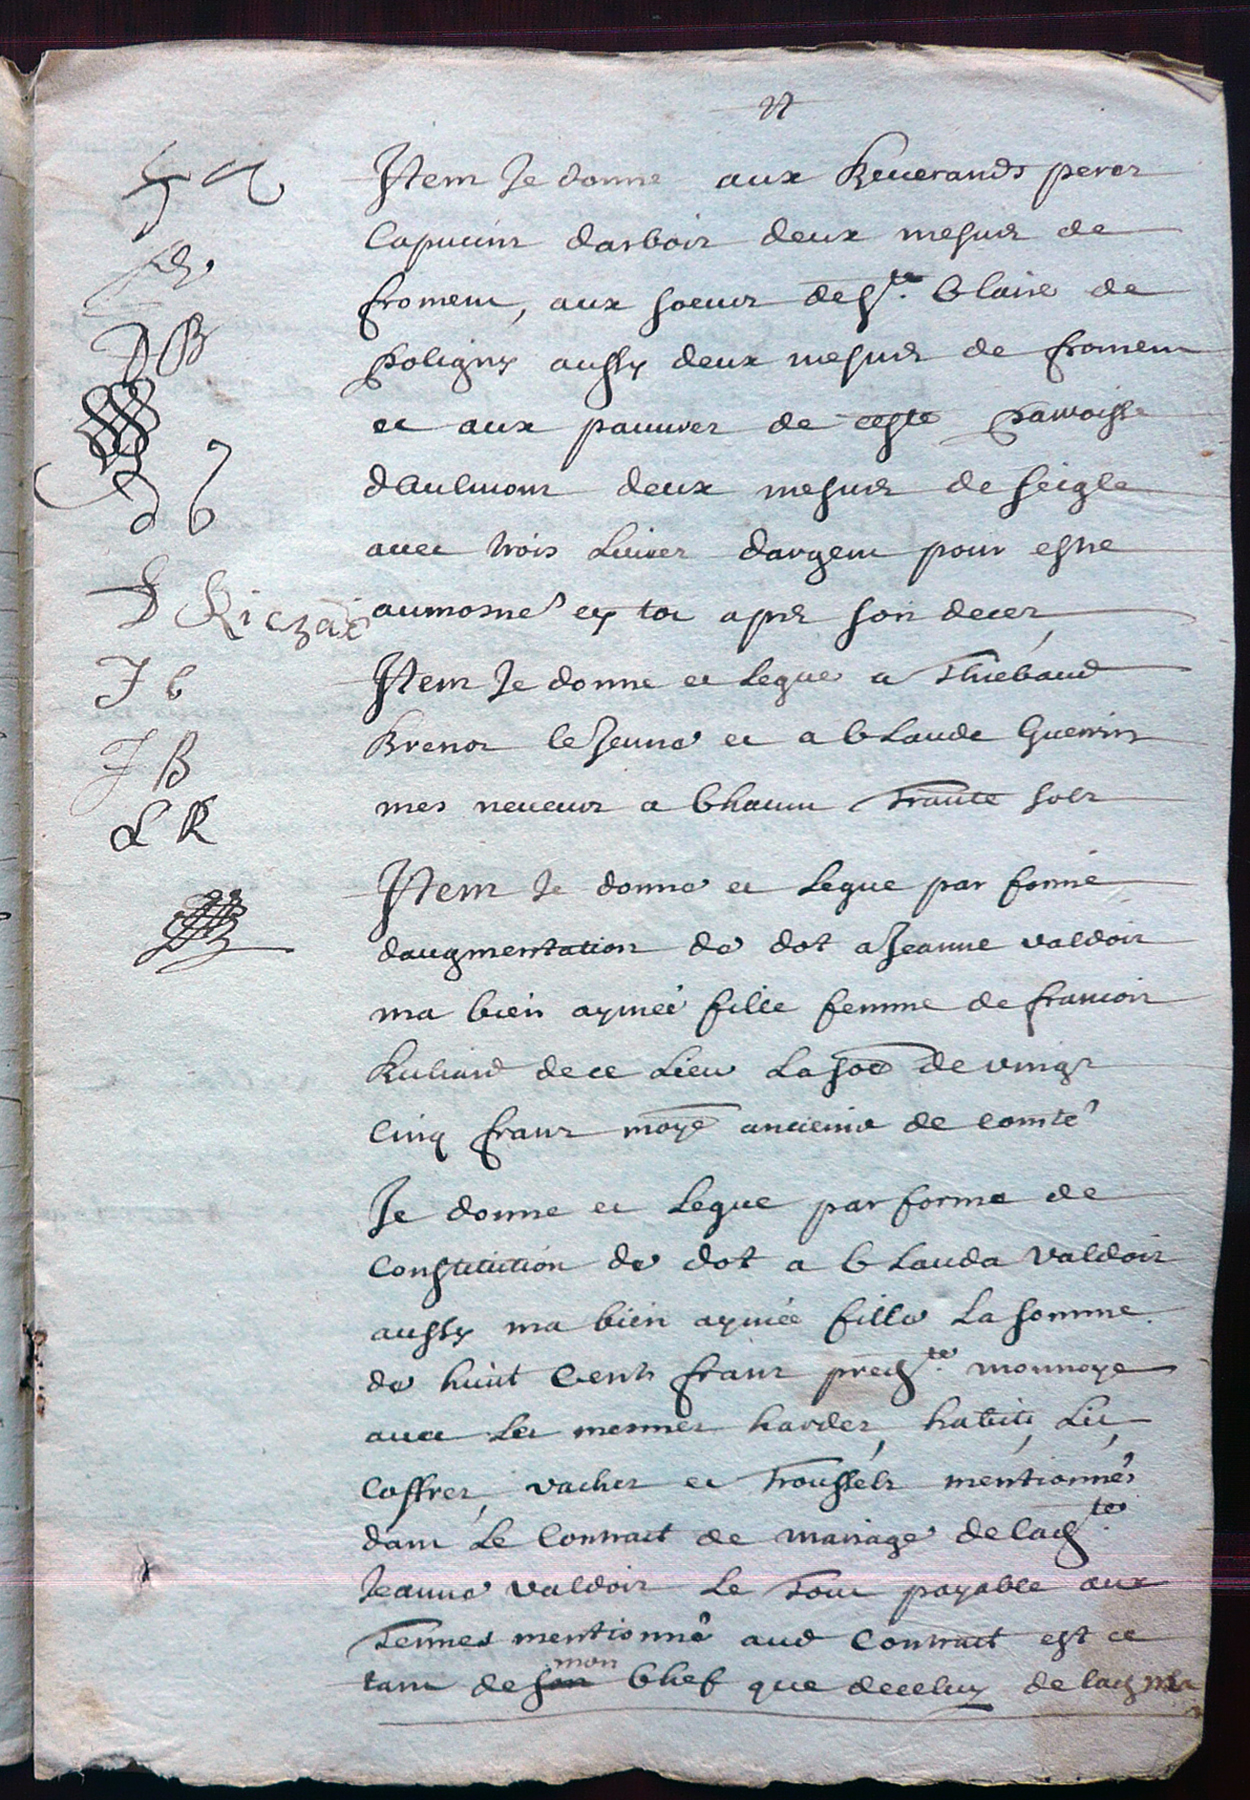 Item Je donne aux Reuerands peres
Capucins darbois deux mesures de
froment, aux soeurs de s.te Claire de
Poligny aussy deux mesures de froment
et aux pauures de ceste parroisse
daulmont deux mesures de seigle
auec trois liures dargent pour estre
aumosné et apres son deces,
Item Je donne et legue a Thiebaud
Brenot le Jeune et a Claude Guerrin
mes neueux a chacun trante solz
Item Je donne et legue par forme
daugmentation de dot a Jeanne valdois
ma bien aymée fille femme de francois
Richard de ce lieu la soe de vingt
Cinq frans monoye ancienne de comté
Je donne et legue par forme de
Constitution de dot a Clauda Valdois
aussy ma bien aymée fille la somme
de huit Cents frans predte monnoye
auec les mesmes hardes, habits, lit,
Coffres, vaches et trousselz mentionnés
dans le Contract de mariage de ladte
Jeanne valdois le tout payable aux
termes mentionné aud Contract est ce
tant de son mon Chef que de celuy de lad
D B
D Riczard
J C
J B
L R